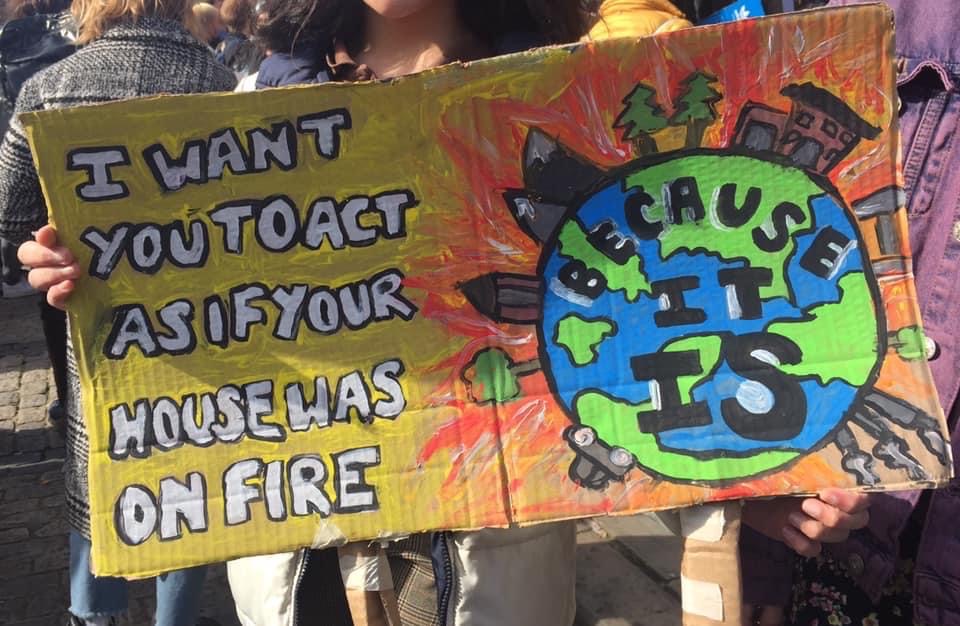 I WANT
YOU TO ACT
AS IF YOUR
HOUSE WAS
ON FIRE
BECAUSE
IT
IS